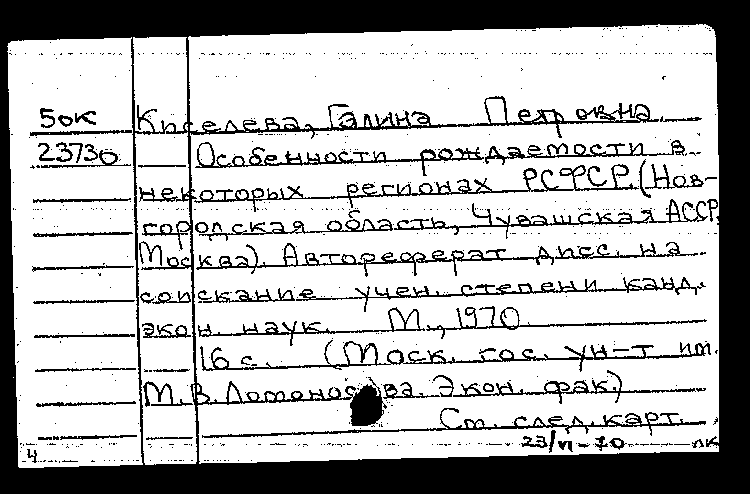 50к Киселева, Галина Петровна.
23730 Особенности рождаемости в
некоторых регионах РСФСР. (Нов-
городская область, Чувашская АССР,
Москва). Автореферат дисс. на
соискание учен. степени канд.
экон. наук. М., 1970
16 с. (Моск. гос. ун-т им.
М. В. Ломоносова. Экон. фак.)
См. след. карт.
23/VI-70 лк
4